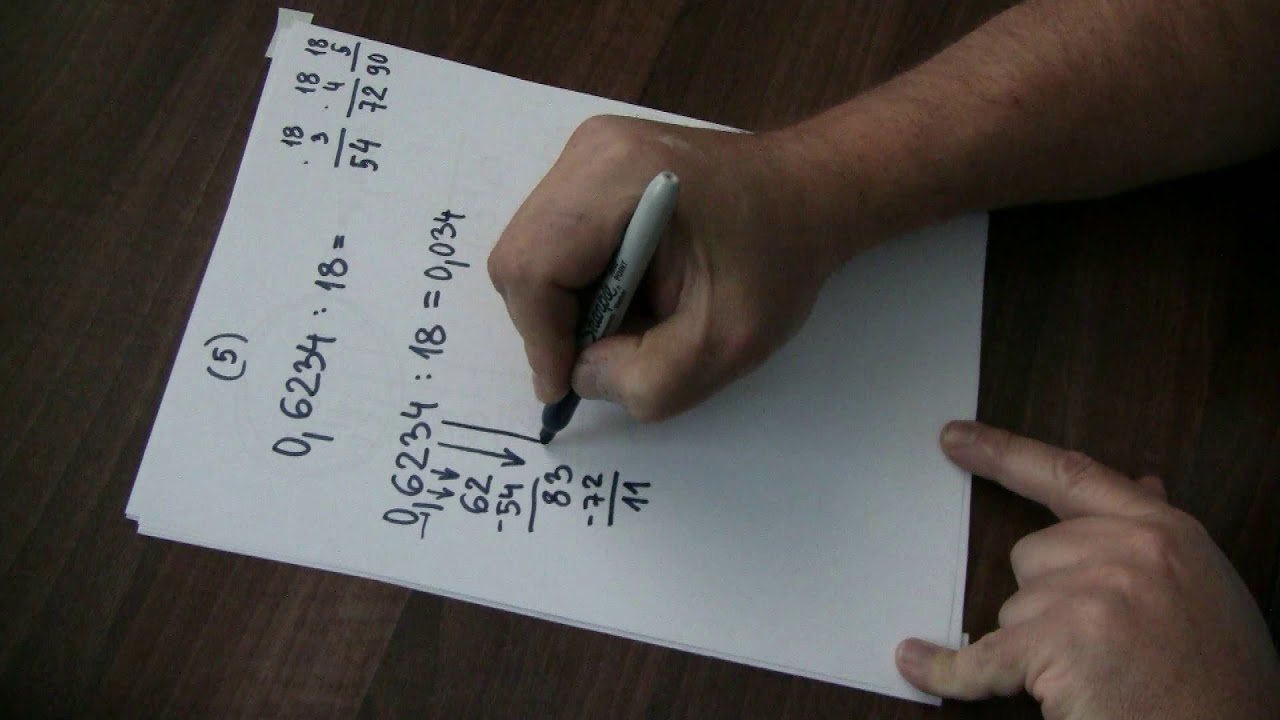 (5)
0,6234 : 18 =
· 18 · 18 18
3 4 5
54 72 90
0,6234 : 18 = 0,034
62
-54
83
-72
11
Sharpie
POINT